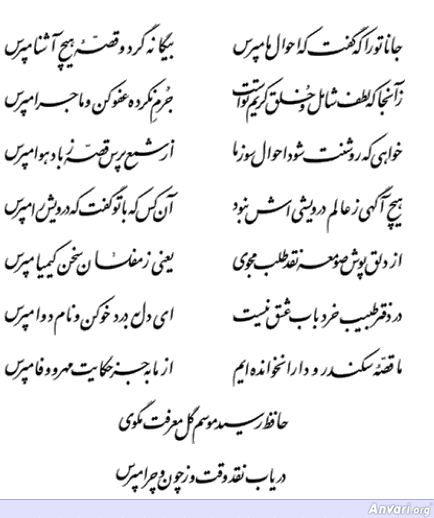 جانا تو را که گفت که احوال ما مپرس بیگانه گرد و قصّهٔ هیچ آشنا مپرس
زآنجا که لطف شامل و خلق کریم تو است جرم نکرده عفو کن و ماجرا مپرس
خواهی که روشنت شود احوال سوز ما از شمع پرس قصه ز باد هوا مپرس
هیچ آگهی ز عالم درویشی اش نبود آن کس که با تو گفت که درویش را مپرس
از دلق پوش صومعه نقد طلب مجوی یعنی ز مفلسان سخن کیمیا مپرس
در دفتر طبیب خرد باب عشق نیست ای دل به درد خو کن و نام دوا مپرس
ما قصّهٔ سکندر و دارا نخوانده ایم از ما به جز حکایت مهر و وفا مپرس
حافظ رسید موسم گل معرفت مگوی
دریاب نقد وقت و ز چون و چرا مپرس
Anvari.org